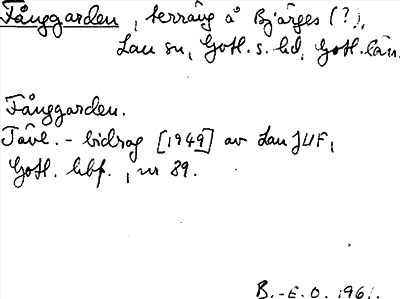 Fånggarden, terräng å Bjärges (?),
Lau sn, Gotl. s. hd, Gotl. län.
Fånggarden.
Tävl. - bidrag [1949] av Lau JUF,
Gotl. hbf., nr 89.
B.-E. O. 1961.